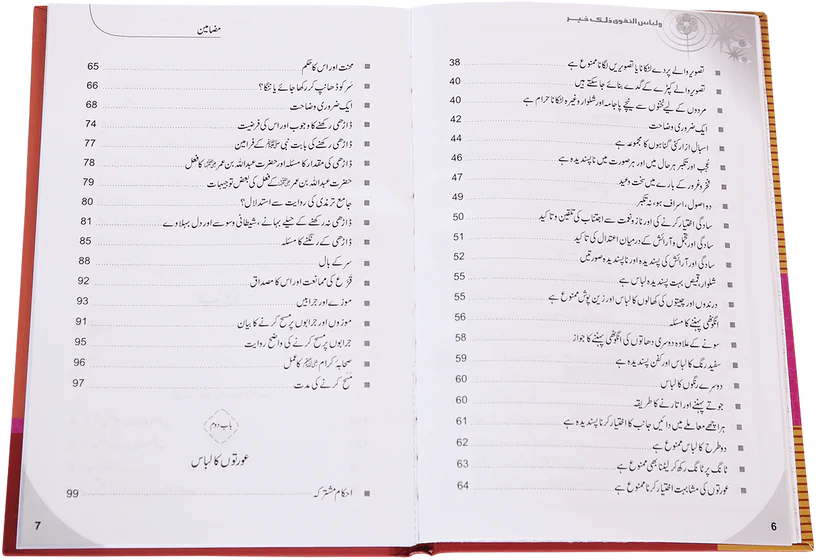 ولباس التقوی ذلک خیر
تصویر والے پردے لٹکانا یا تصویریں لگانا ممنوع ہے 38
تصویر والے کپڑے کے گدے بنائے جا سکتے ہیں 40
مردوں کے لیے ٹخنوں سے نیچے پاجامہ اور شلوار وغیرہ لٹکانا حرام ہے 40
ایک ضروری وضاحت 42
اسبالِ ازار کئی گناہوں کا مجموعہ ہے 44
عُجب اور تکبر ہر حال میں اور ہر صورت میں ناپسندیدہ ہے 46
فخر و غرور کے بارے میں سخت وعید 47
دو اصول، اسراف ہو، نہ تکبر 49
سادگی اختیار کرنے کی اور ناز و نعمت سے اجتناب کی تلقین و تاکید 50
سادگی اور تجمل و آرائش کے درمیان اعتدال کی تاکید 51
سادگی اور آرائش کی پسندیدہ اور ناپسندیدہ صورتیں 52
شلوار قمیص بہت پسندیدہ لباس ہے 55
درندوں اور چیتوں کی کھالوں کا لباس اور زین پوش ممنوع ہے 55
انگوٹھی پہننے کا مسئلہ 56
سونے کے علاوہ دوسری دھاتوں کی انگوٹھی پہننے کا جواز 58
سفید رنگ کا لباس اور کفن پسندیدہ ہے 59
دوسرے رنگوں کا لباس 60
جوتے پہننے اور اتارنے کا طریقہ 60
ہر اچھے معاملے میں دائیں جانب کا اختیار کرنا پسندیدہ ہے 61
دو طرح کا لباس ممنوع ہے 62
ٹانگ پر ٹانگ رکھ کر لیٹنا بھی ممنوع ہے 63
عورتوں کی مشابہت اختیار کرنا ممنوع ہے 64
6
مضامین
مخنث اور اس کا حکم 65
سر کو ڈھانپ کر رکھا جائے یا ننگا؟ 66
ایک ضروری وضاحت 68
ڈاڑھی رکھنے کا وجوب اور اس کی فرضیت 74
ڈاڑھی رکھنے کی بابت نبی ﷺ کے فرامین 77
ڈاڑھی کی مقدار کا مسئلہ اور حضرت عبداللہ بن عمر کا فعل 78
حضرت عبداللہ بن عمر کے فعل کی بعض توجیہات 79
جامع ترمذی کی روایت سے استدلال؟ 80
ڈاڑھی نہ رکھنے کے حیلے بہانے، شیطانی وسوسے اور دل بہلاوے 81
ڈاڑھی کے رنگنے کا مسئلہ 85
سر کے بال 88
قزع کی ممانعت اور اس کا مصداق 92
موزے اور جرابیں 93
موزوں اور جرابوں پر مسح کرنے کا بیان 91
جرابوں پر مسح کرنے کی واضح روایت 95
صحابۂ کرام کا عمل 96
مسح کرنے کی مدت 97
باب دوم
عورتوں کا لباس
احکام مشترکہ 99
7